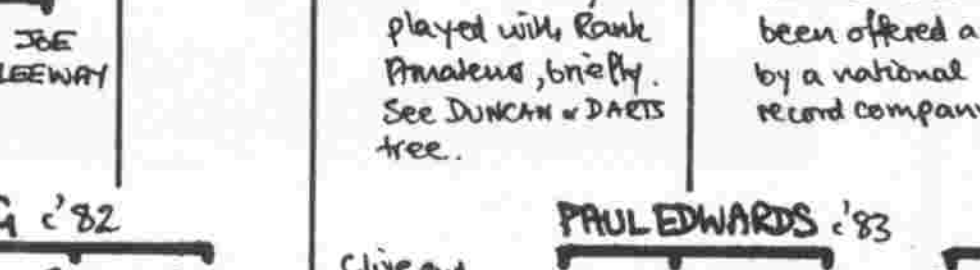 JOE
LEEWAY
played with Rank
Amateurs, briefly.
See DUNCAN or DARTS
tree.
been offered a
by a national
record compan
G c'82
PAUL EDWARDS c'83
Clive on